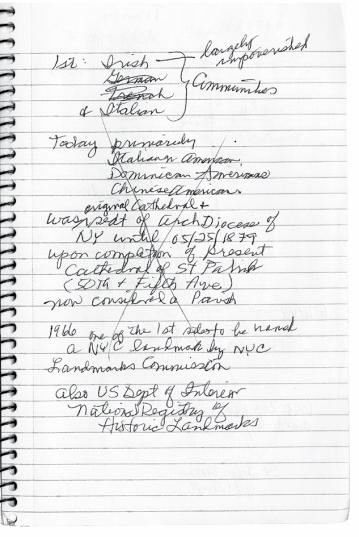 1st: Irish — largely impoverished
German
French
& Italian } Communities
Today primarily
Italian American,
Dominican Americans
Chinese American.
original Cathedral +
was seat of Arch Diocese of
NY until 05/25/1879
upon completion of present
Cathedral of St Patrick
(50th + Fifth Ave)
now considered a Parish
1966 one of the 1st sites to be named
a NYC landmark by NYC
Landmarks Commission
also US Dept of Interior
National Registry of
Historic Landmarks